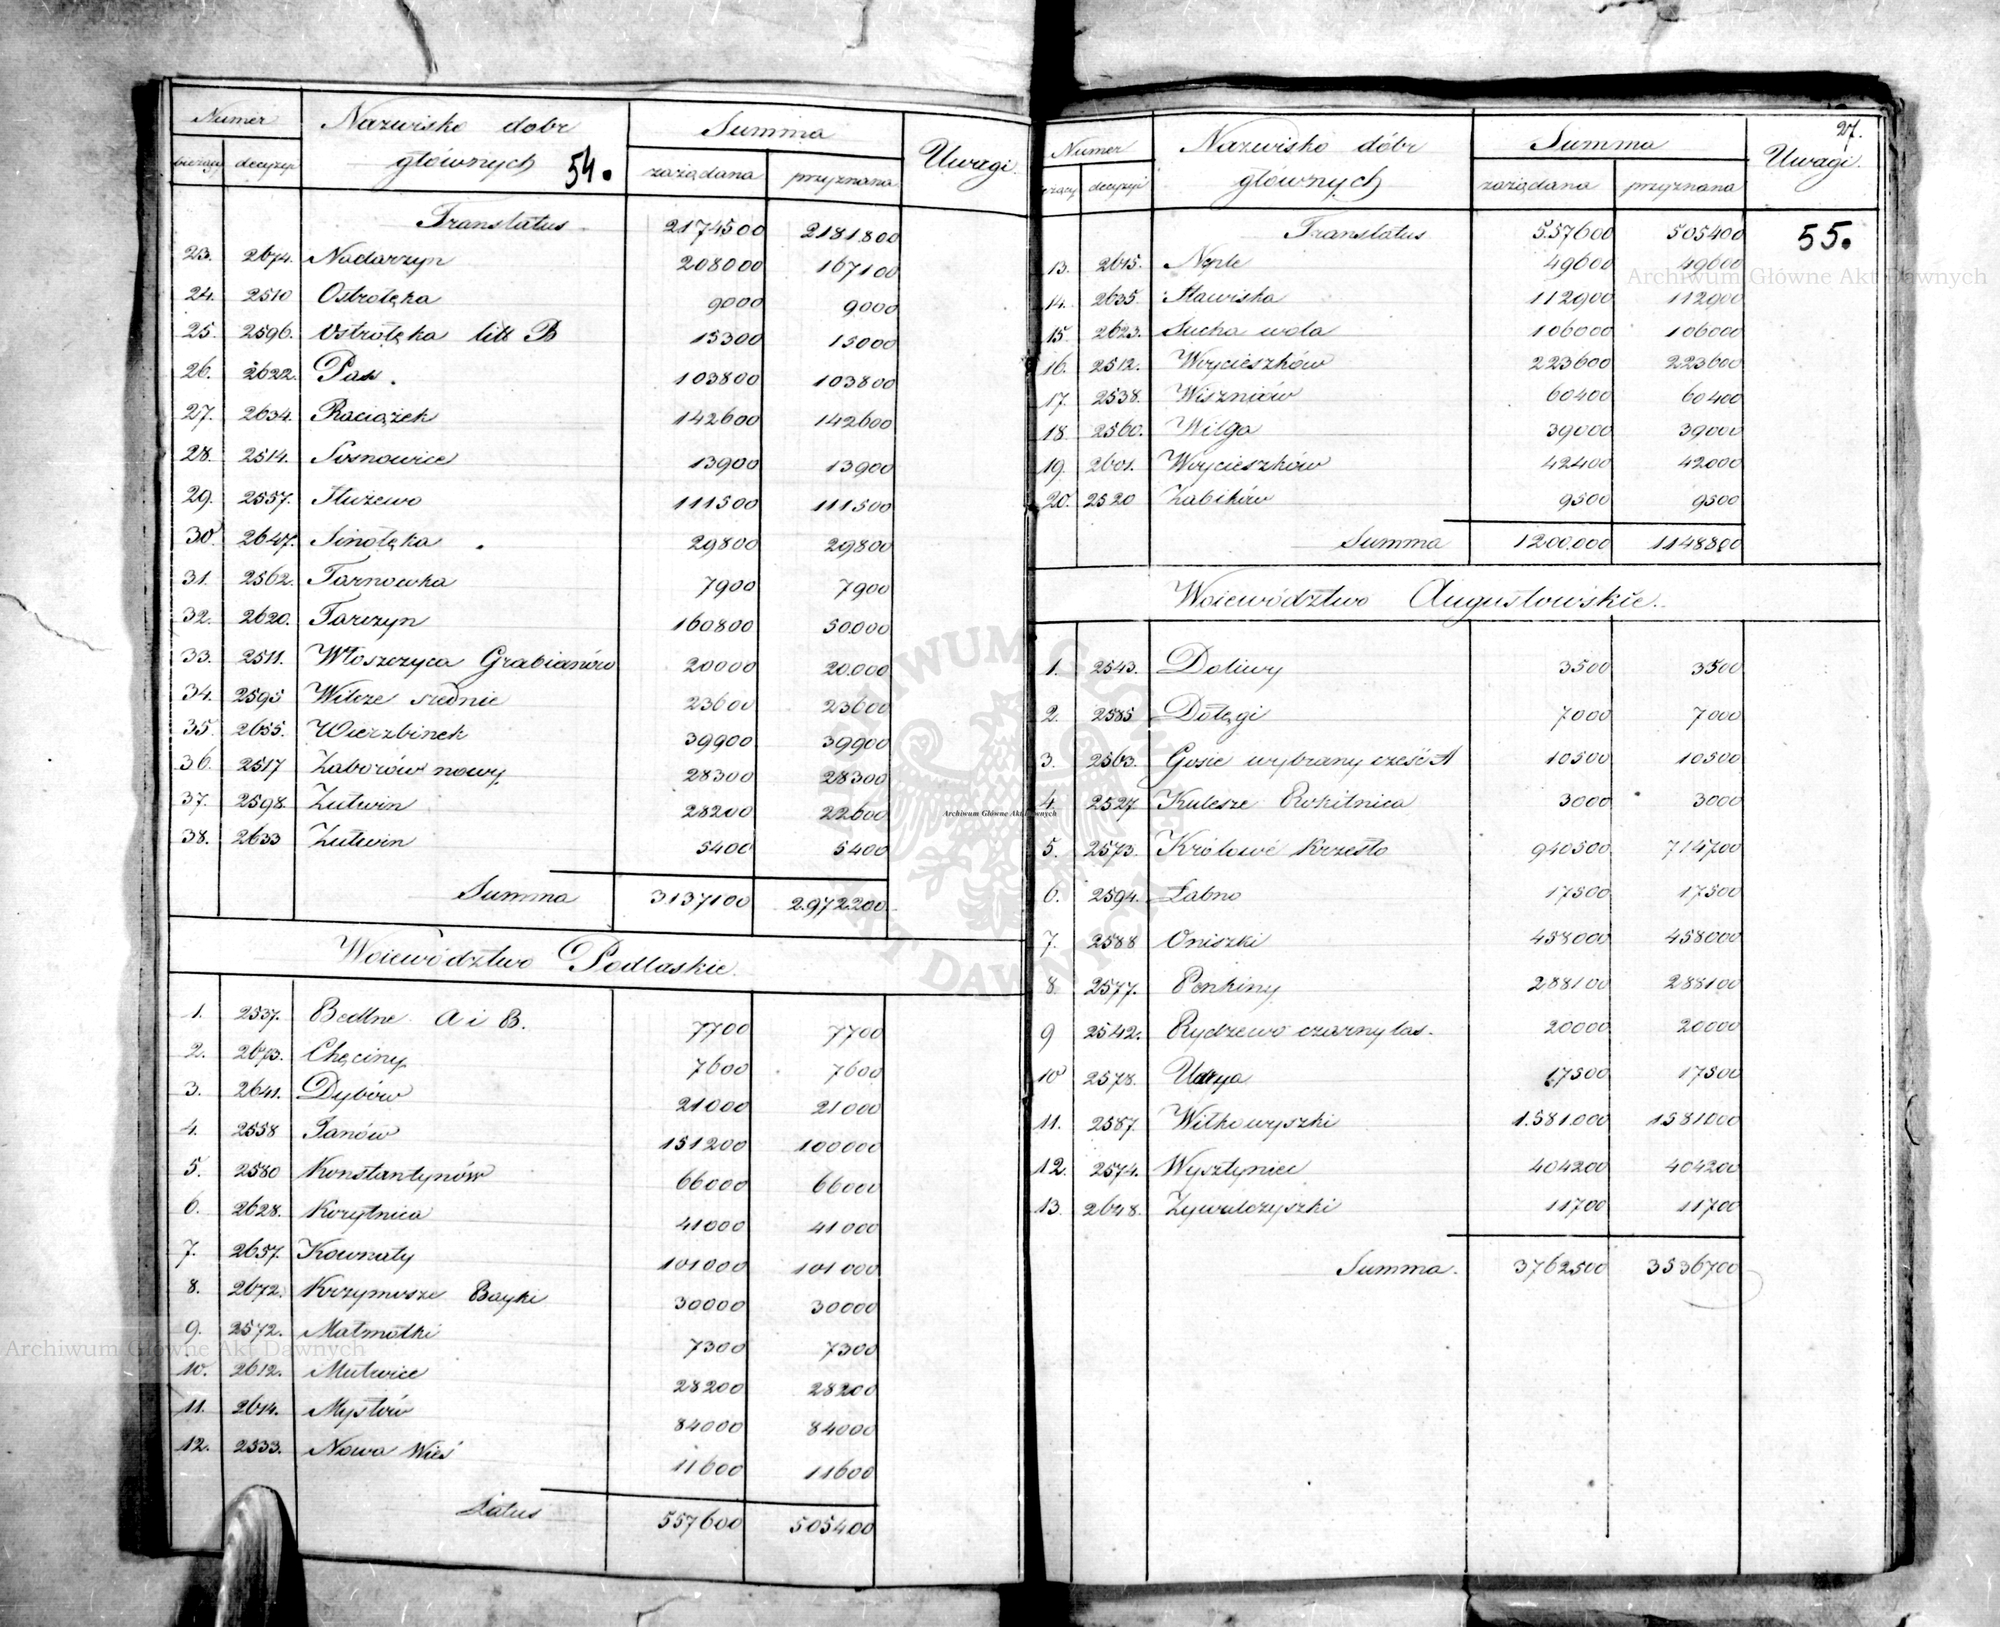 Numer Nazwisko dobr Summa Uwagi
bieżący decyzyi głównych 54. zażądana przyznana
Translatus 2174500 2181.800
23. 2674. Nadarzyn 208000 167100
24. 2510 Ostrołęka 9000 9000
25. 2596. Ostrołęka litt B 15300 15000
26. 2622. Pass. 103800 103800
27. 2634. Raciążek 142600 142600
28. 2514. Sosnowice 13900 13900
29. 2557. Służewo 111500 111500
30. 2647. Sinołęka 29800 29800
31. 2562. Tarnowka 7900 7900
32. 2620. Tarczyn 160800 50.000
33. 2511. Włoszczyca Grabianów 20000 20.000
34. 2595 Wilcze srednie 23600 23600
35. 2655. Wierzbinek 39900 39900
36. 2517 Zaborów nowy 28300 28300
37. 2598. Żutwin 28200 22600
38. 2633 Żutwin 5400 5400
Summa 3137100 2.972.200
Woiewództwo Podlaskie.
1. 2537. Bedlne A i B. 7700 7700
2. 2673. Chęciny 7600 7600
3. 2641. Dybów 21000 21000
4. 2558 Janów 151200 100000
5. 2580 Konstantynów 66000 66000
6. 2628. Korytnica 41000 41000
7. 2657. Kownaty 101000 101000
8. 2672. Krzymosze Bayki 30000 30000
9. 2572. Małmołki 7300 7300
10. 2612. Mutwice 28200 28200
11. 2614. Mysłów 84000 84000
12. 2533. Nowa Wieś 11600 11600
Latus 557600 505400
27.
Numer Nazwisko dóbr Summa Uwagi.
decyzyi głownych zażądana przyznana
Translatus 557600 505400 55.
13. 2615. Neple 49600 49600
14. 2635. Stawiska 112900 112900
15. 2623. Sucha wola 106000 106000
16. 2512. Woycieszków 223600 223600
17. 2538. Wiszniów 60400 60400
18. 2560. Wilga 39000 39000
19. 2601. Woycieszków 42400 42000
20. 2520 Żabików 9500 9500
Summa 1200.000 1148800
Woiewództwo Augustowskie.
1. 2543. Doliwy 3500 3500
2. 2585 Dołęgi 7000 7000
3. 2563. Gosie wybrany cześć A 10500 10500
4. 2527 Kulesze Rokitnica 3000 3000
5. 2573. Królowé Krzesło 940500 714700
6. 2594. Łabno 17500 17500
7. 2588 Oniszki 458000 458000
8. 2577. Penkiny 288100 288100
9 2542. Rydzewo czarny las. 20000 20000
10 2578. Udrya 17500 17500
11. 2587. Wiłkowyszki 1.581.000 1581000
12. 2574. Wysztyniec 404200 404200
13. 2648. Żywulczyszki 11700 11700
Summa. 3762500 3536700
Archiwum Główne Akt Dawnych
Archiwum Główne Akt Dawnych
Archiwum Główne Akt Dawnych